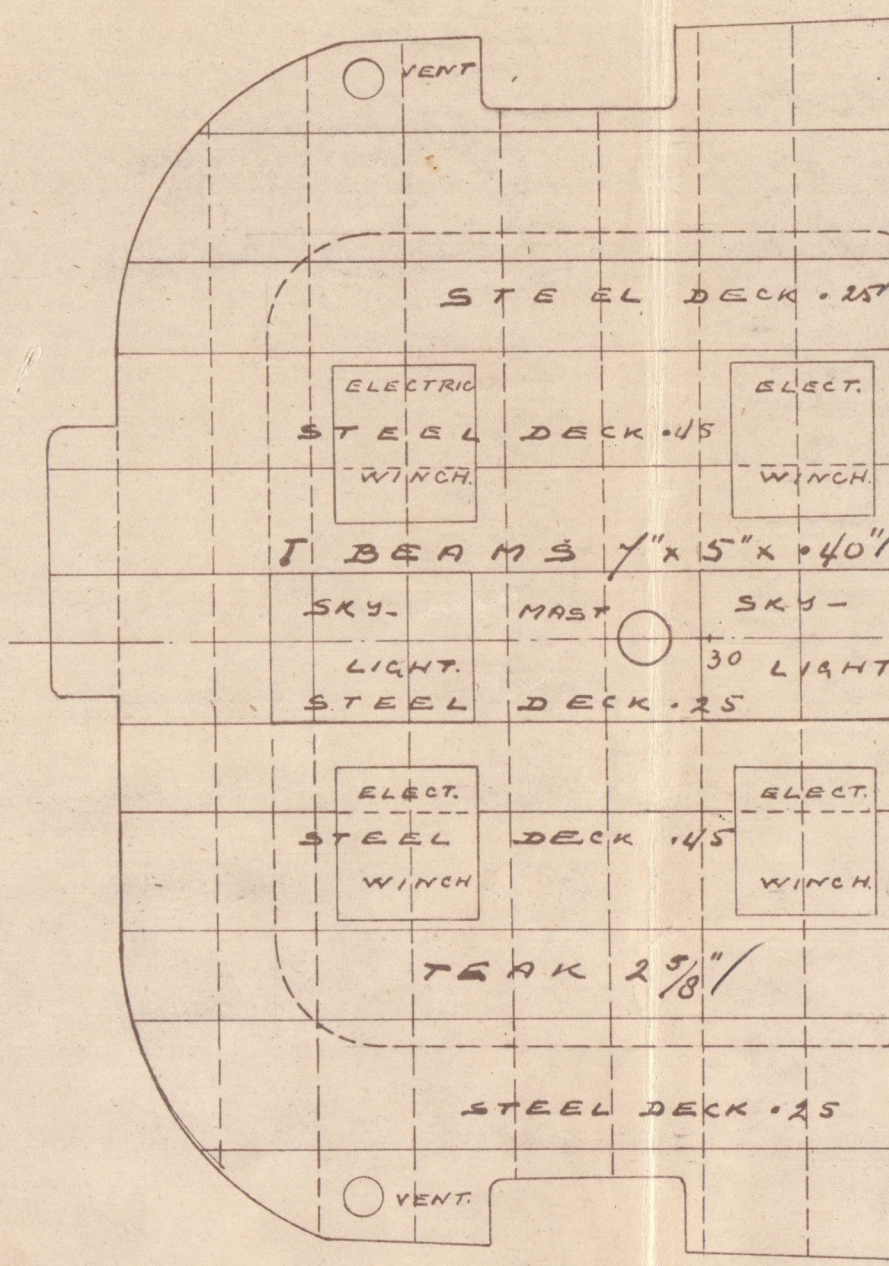 VENT
STEEL DECK .25"
ELECTRIC ELECT.
STEEL DECK .45
WINCH. WINCH.
I BEAMS 7" x 5" x .40"/
SKY- MAST SKY-
LIGHT. 30 LIGHT
STEEL DECK .25
ELECT. ELECT.
STEEL DECK .45
WINCH WINCH.
TEAK 2 5/8"/
STEEL DECK .25
VENT.